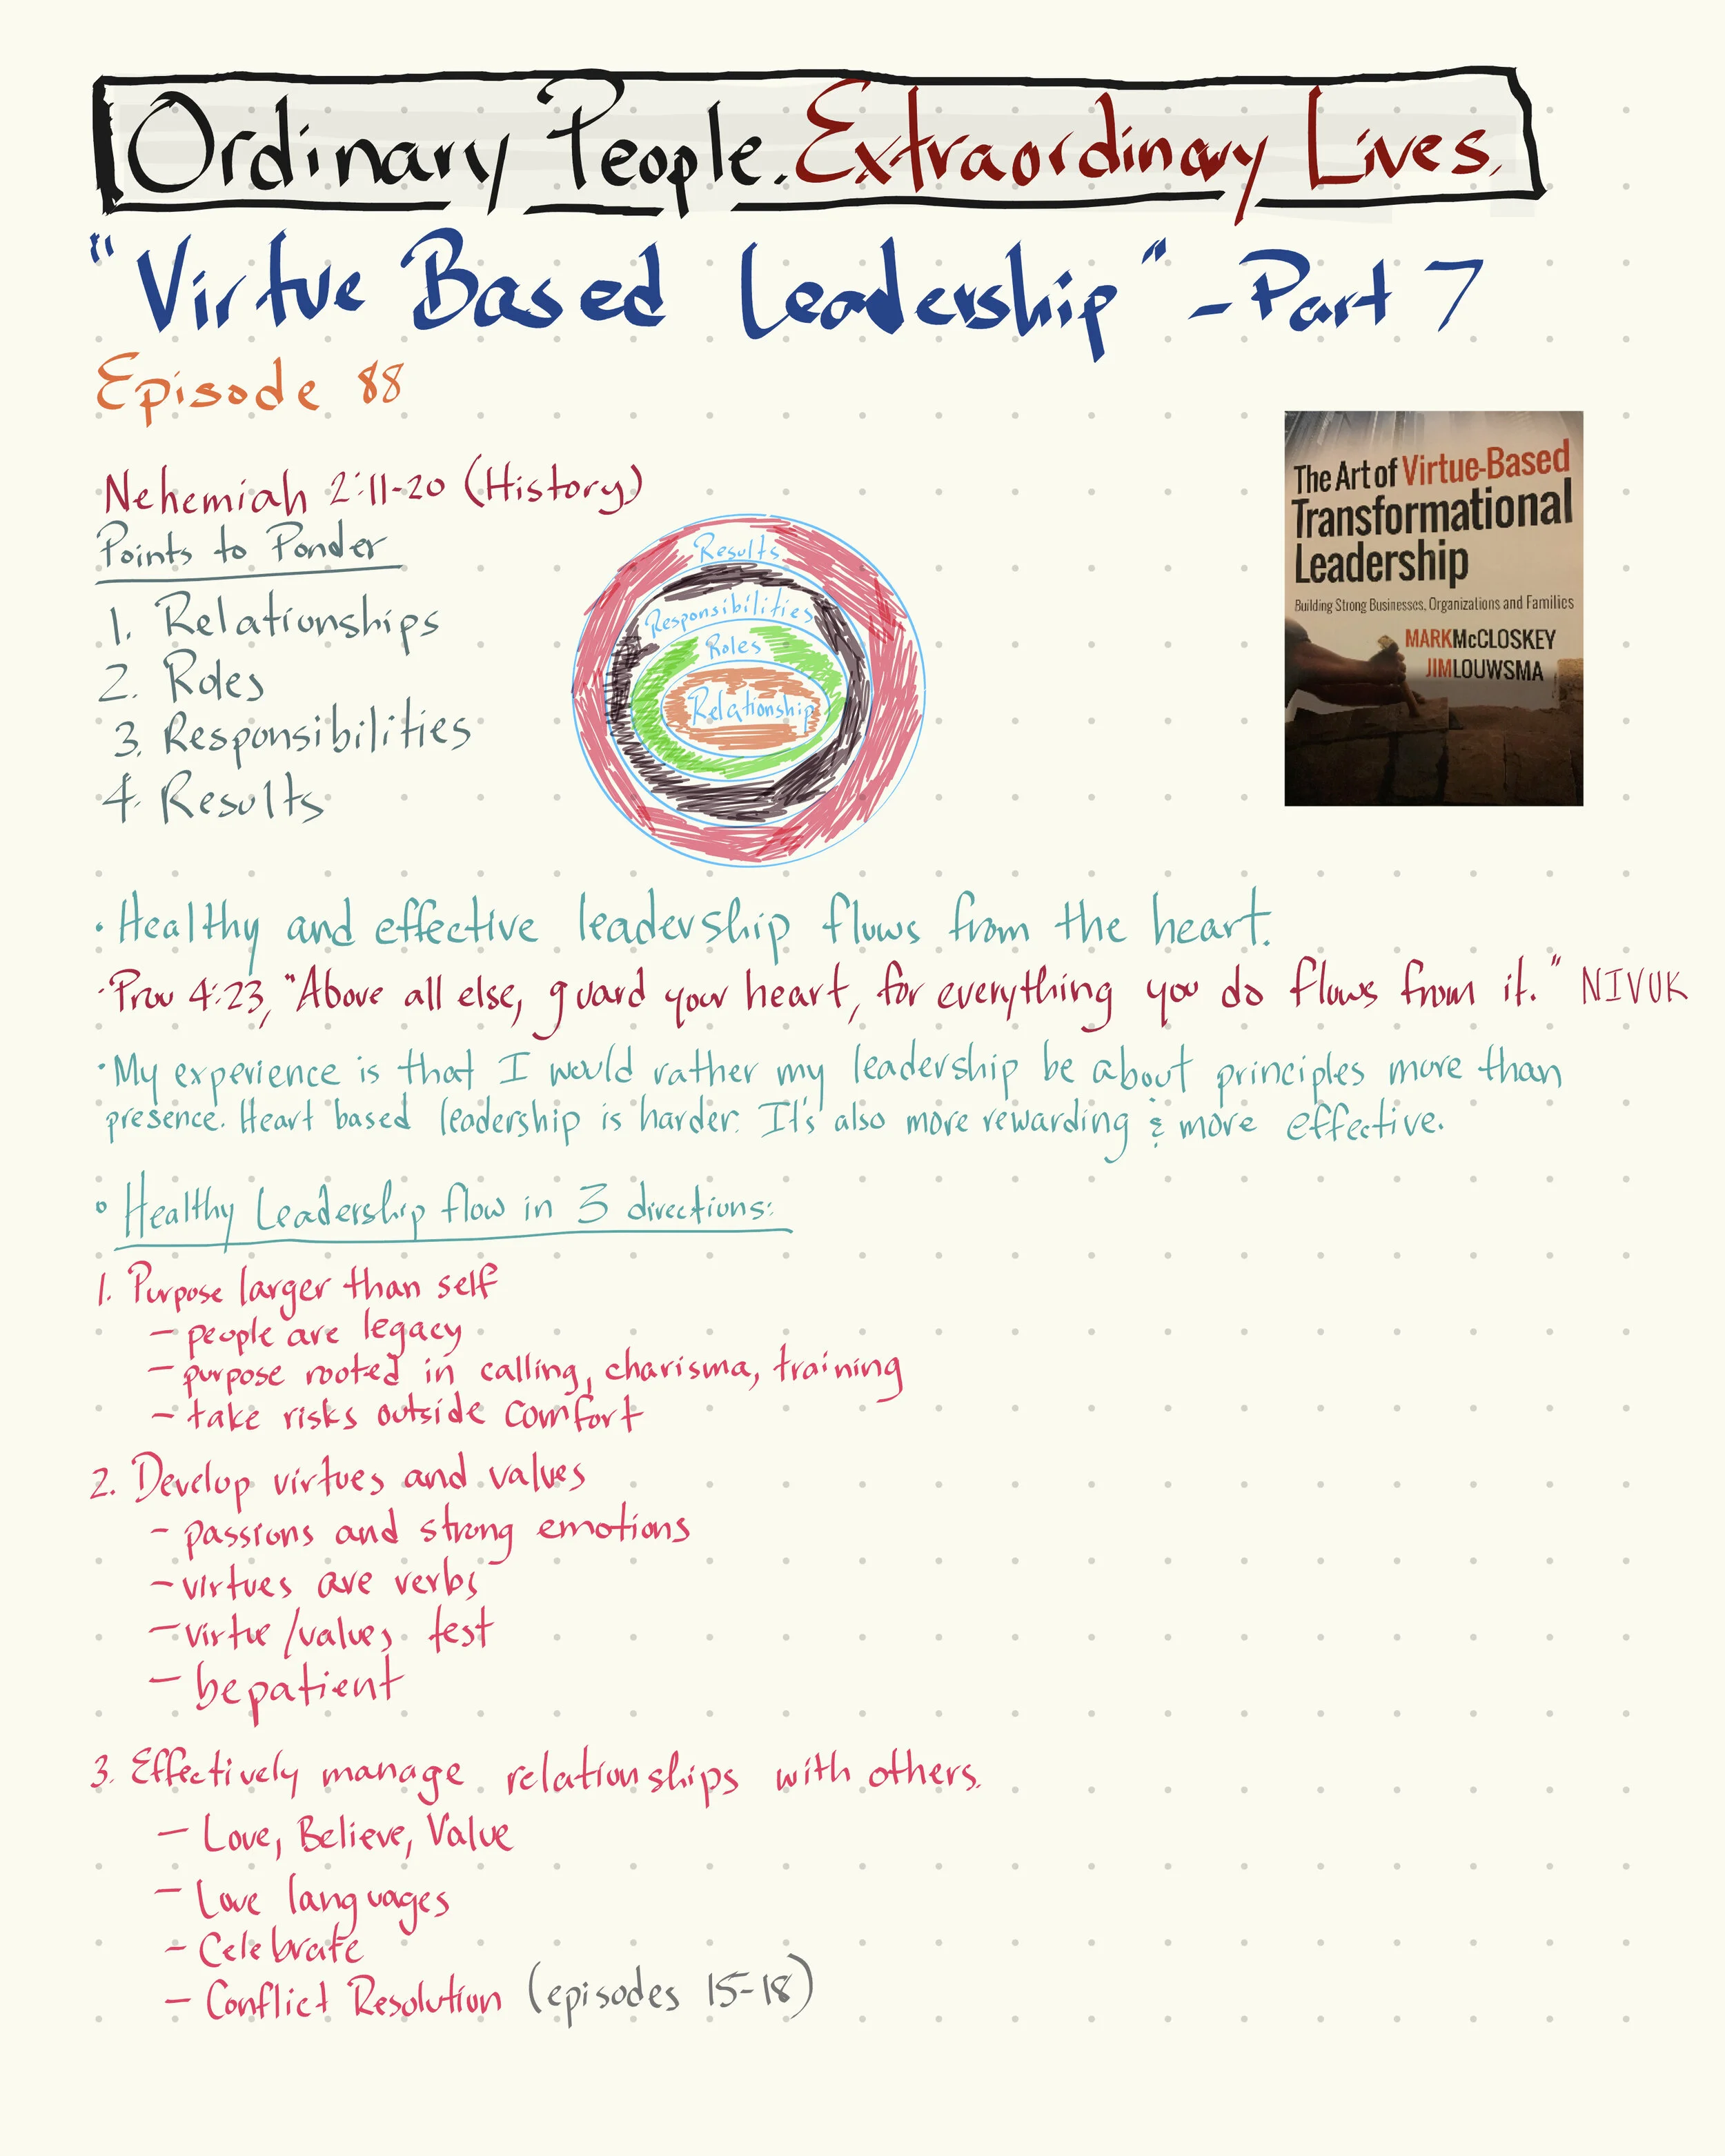 Ordinary People. Extraordinary Lives.
"Virtue Based Leadership" - Part 7
Episode 88
Nehemiah 2:11-20 (History)
Points to Ponder
1. Relationships
2. Roles
3. Responsibilities
4. Results
Results
Responsibilities
Roles
Relationship
The Art of Virtue-Based
Transformational
Leadership
Building Strong Businesses, Organizations and Families
MARK McCLOSKEY
JIM LOUWSMA
• Healthy and effective leadership flows from the heart.
• Prov 4:23, "Above all else, guard your heart, for everything you do flows from it." NIVUK
• My experience is that I would rather my leadership be about principles more than
presence. Heart based leadership is harder. It's also more rewarding & more effective.
• Healthy Leadership flow in 3 directions:
1. Purpose larger than self
- people are legacy
- purpose rooted in calling, charisma, training
- take risks outside comfort
2. Develop virtues and values
- passions and strong emotions
- virtues are verbs
- virtue/values test
- be patient
3. Effectively manage relationships with others.
- Love, Believe, Value
- Love languages
- Celebrate
- Conflict Resolution (episodes 15-18)